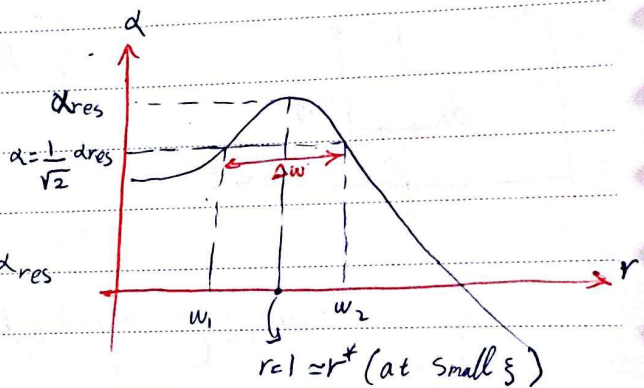 α
α_res
α = 1/√2 α_res
Δw
α_res
r
w₁
w₂
r=1 ≃ r* (at small ξ)